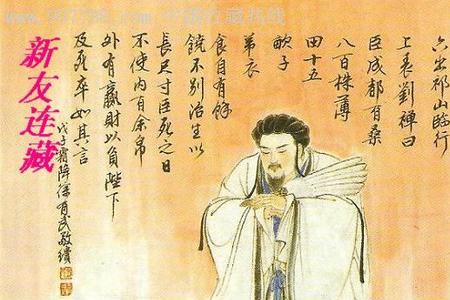 www.997788.com 中国收藏热线
六出祁山臨行
上表劉禪曰
臣成都有桑
八百株薄
田十五
畝子
弟衣
食自有餘
饒不别治生以
長尺寸臣死之日
不使内有余帛
外有贏財以負陛下
及死卒如其言
戊子霜降徐有武敬繪
新友连藏